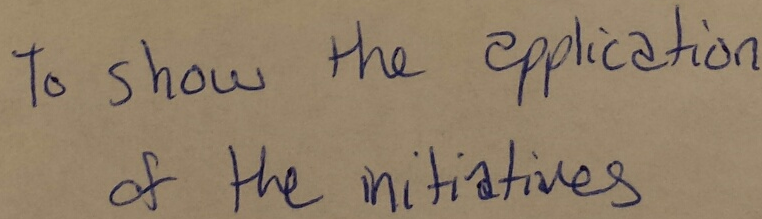 To show the application
of the initiatives